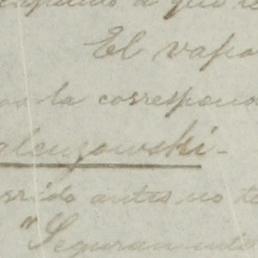 a que
El vapo
la correspond
alenzowski.
rrido antes no te
"Seguramente